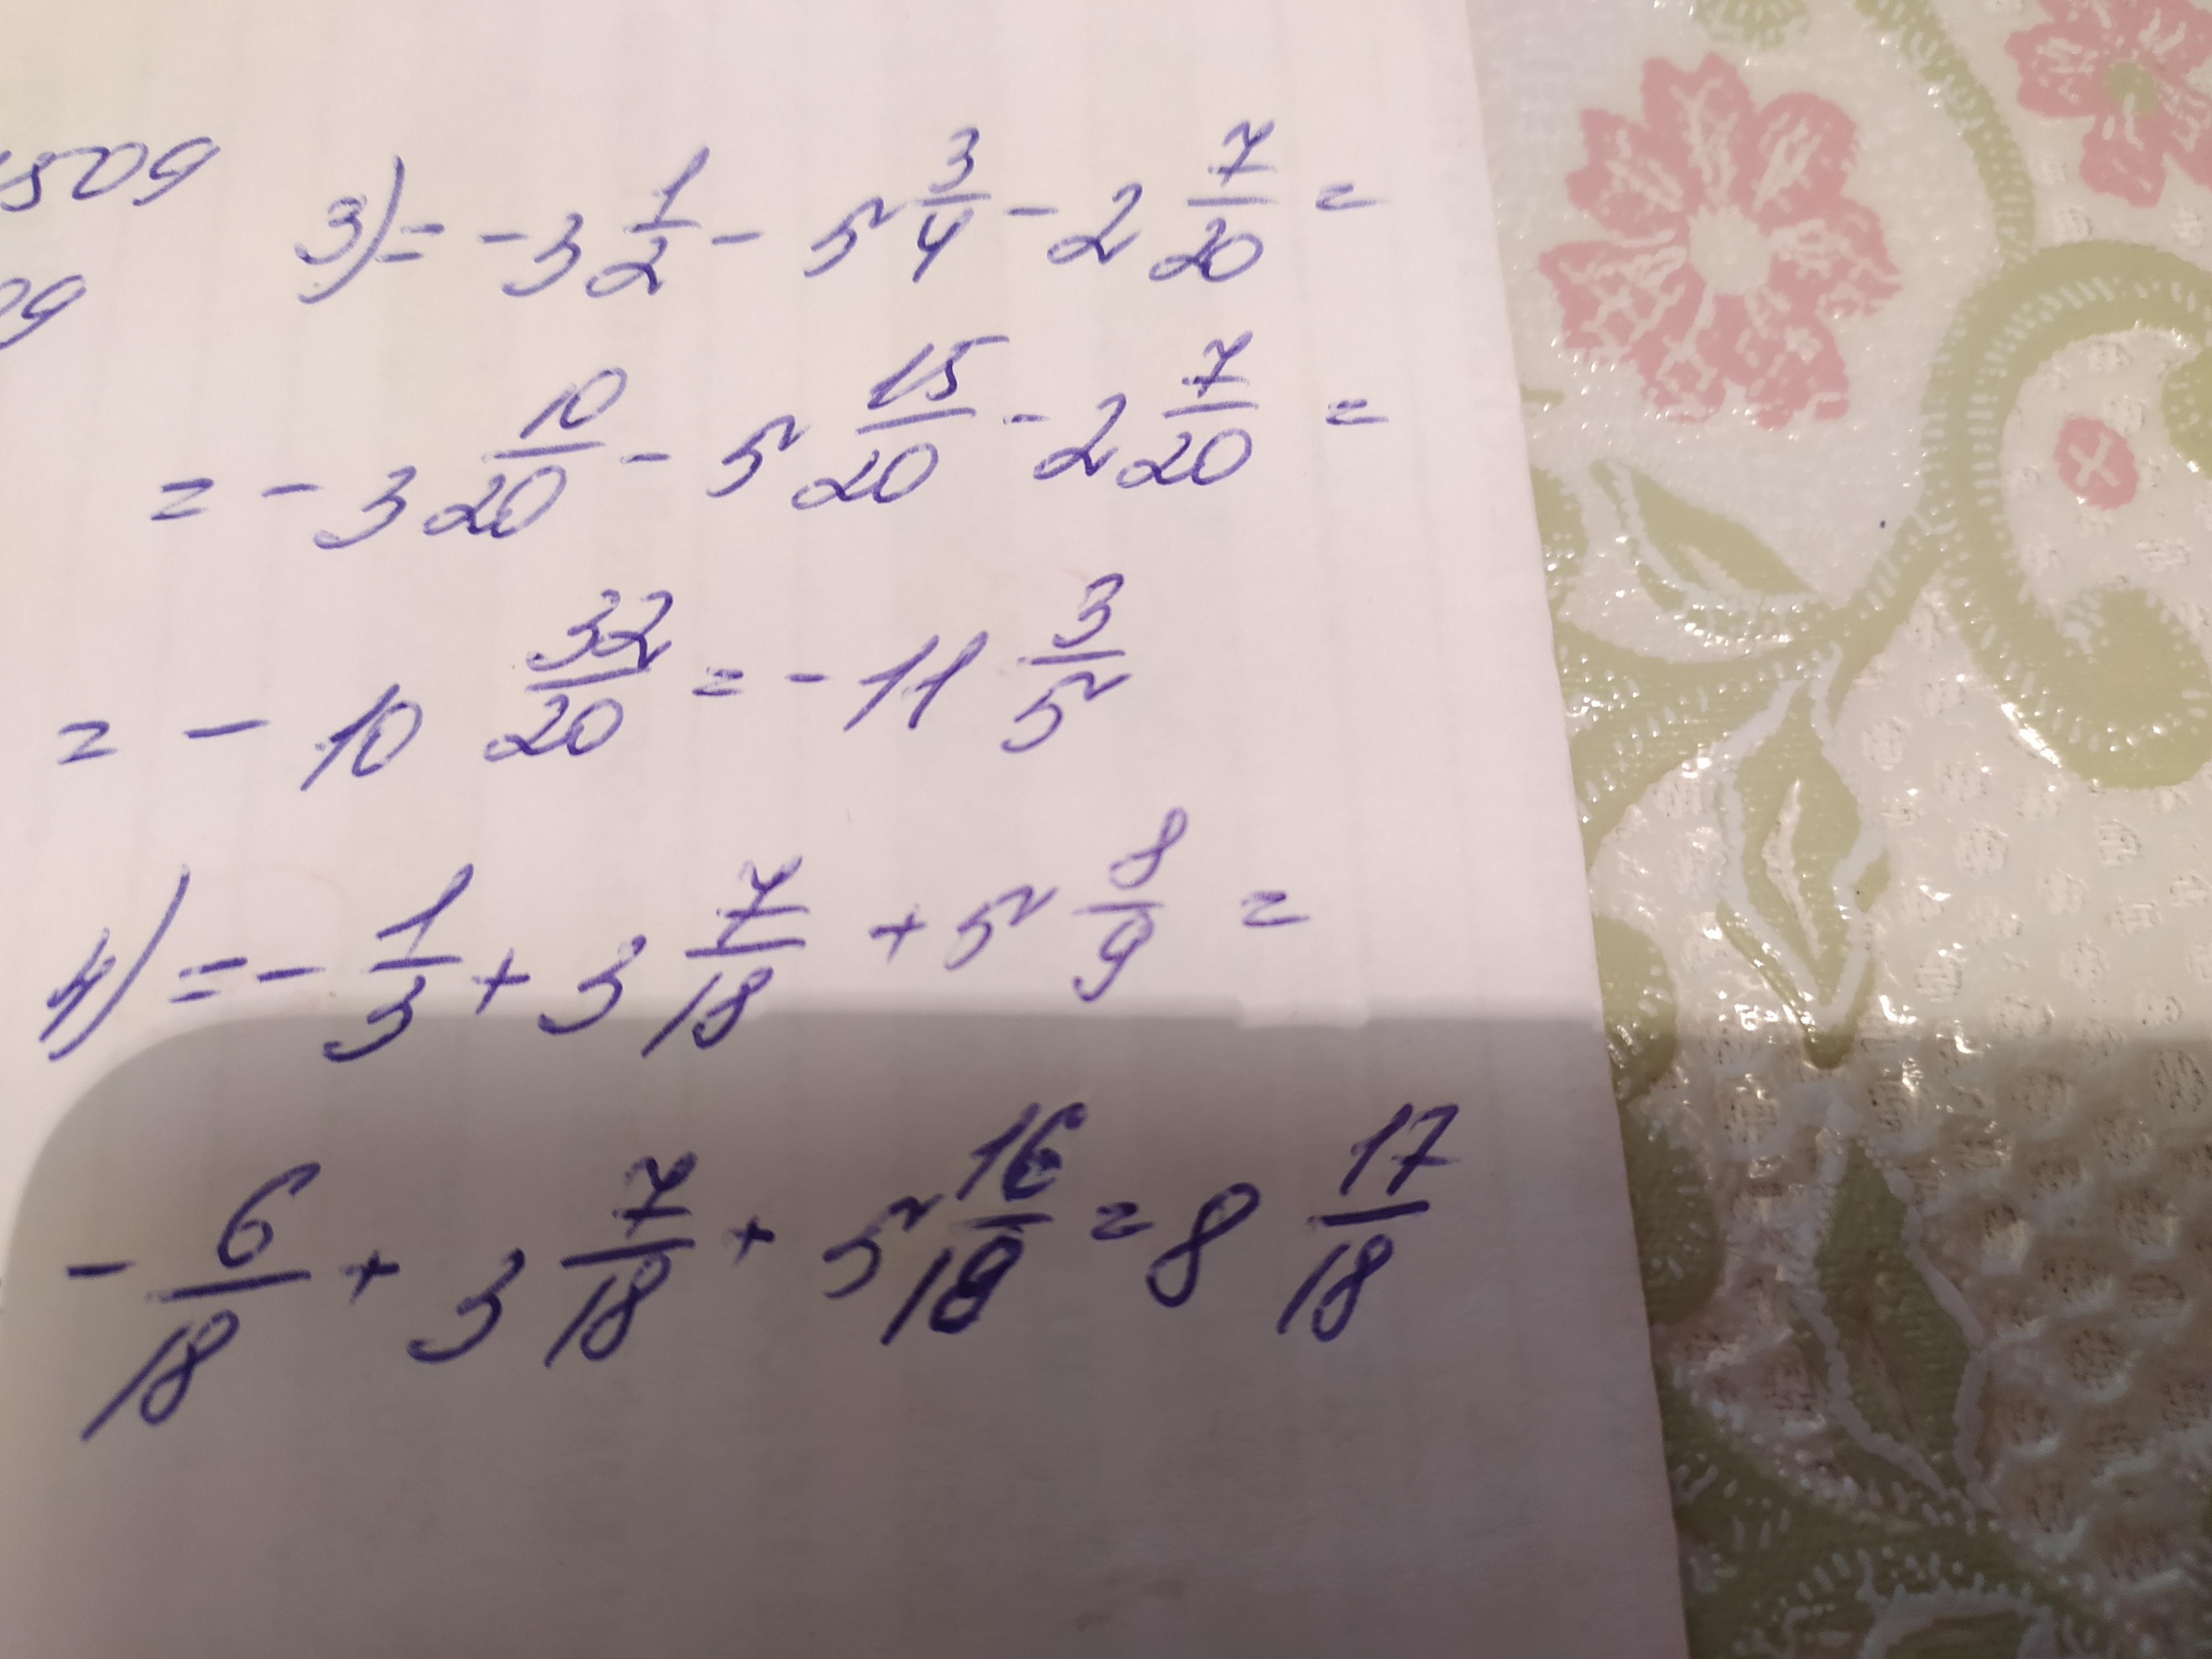 509
09
3) = - 3 1/2 - 5 3/4 - 2 7/20 =
= - 3 10/20 - 5 15/20 - 2 7/20 =
= - 10 32/20 = - 11 3/5
4) = - 1/3 + 3 7/18 + 5 8/9 =
- 6/18 + 3 7/18 + 5 16/18 = 8 17/18